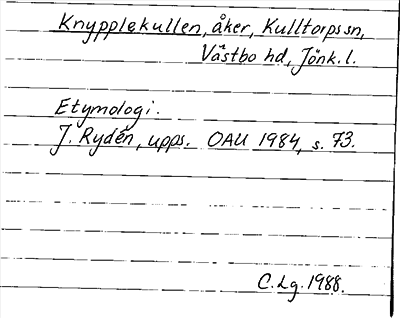 Knypplekullen, åker, Kulltorps sn,
Västbo hd, Jönk. l.
Etymologi.
J. Rydén, upps. OAU 1984, s. 73.
C. Lg. 1988.